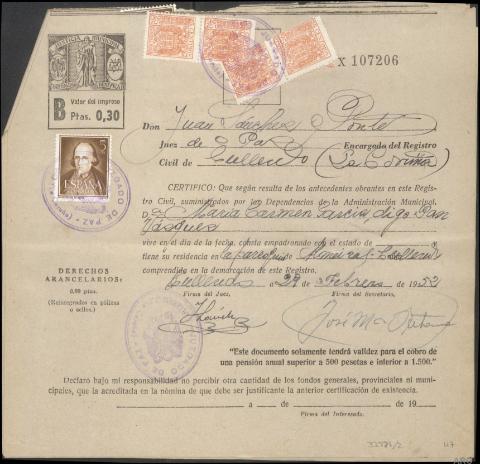 JUSTICIA MUNICIPAL
X 107206
B Valor del impreso
Ptas. 0,30
Don Juan Sánchez Ponte
Juez de Paz Encargado del Registro
Civil de Cullerdo (La Coruña)
5
ESPAÑA
JUZGADO DE PAZ
CERTIFICO: Que según resulta de los antecedentes obrantes en este Registro
Civil, suministrados por las Dependencias de la Administración Municipal.
D.ª María Carmen García, digo
Vásquez
vive en el día de la fecha, consta empadronado con el estado de
tiene su residencia en
comprendida en la demarcación de este Registro.
DERECHOS
ARANCELARIOS:
0,90 ptas.
(Reintegrados en póliza
o sellos.)
Cullerdo a 29 de Febrero de 1952
Firma del Juez, Firma del Secretario,
JUZGADO DE PAZ
José Mª
"Este documento solamente tendrá validez para el cobro de
una pensión anual superior a 500 pesetas e inferior a 1.500."
Declaro bajo mi responsabilidad no percibir otra cantidad de los fondos generales, provinciales ni muni-
cipales, que la acreditada en la nómina de que debe ser justificante la anterior certificación de existencia.
a de de 19
Firma del Interesado.
117